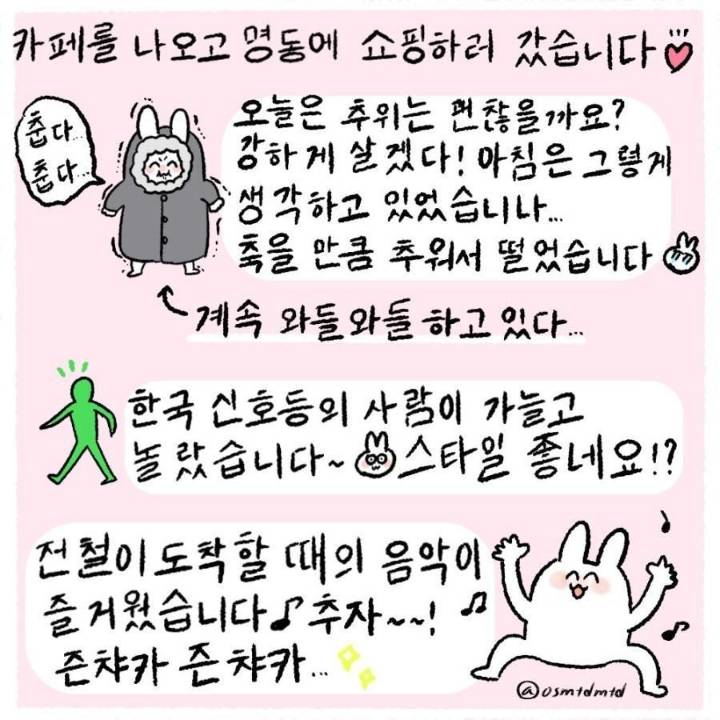 카페를 나오고 명동에 쇼핑하러 갔습니다
춥다..
춥다...
오늘은 추위는 괜찮을까요?
강하게 살겠다! 아침은 그렇게
생각하고 있었습니나...
축을 만큼 추워서 떨었습니다
계속 와들와들 하고 있다...
한국 신호등의 사람이 가늘고
놀랐습니다~ 스타일 좋네요!?
전철이 도착할 때의 음악이
즐거웠습니다♪ 추자~~!
즌챠카 즌챠카...
@osmtdmtd